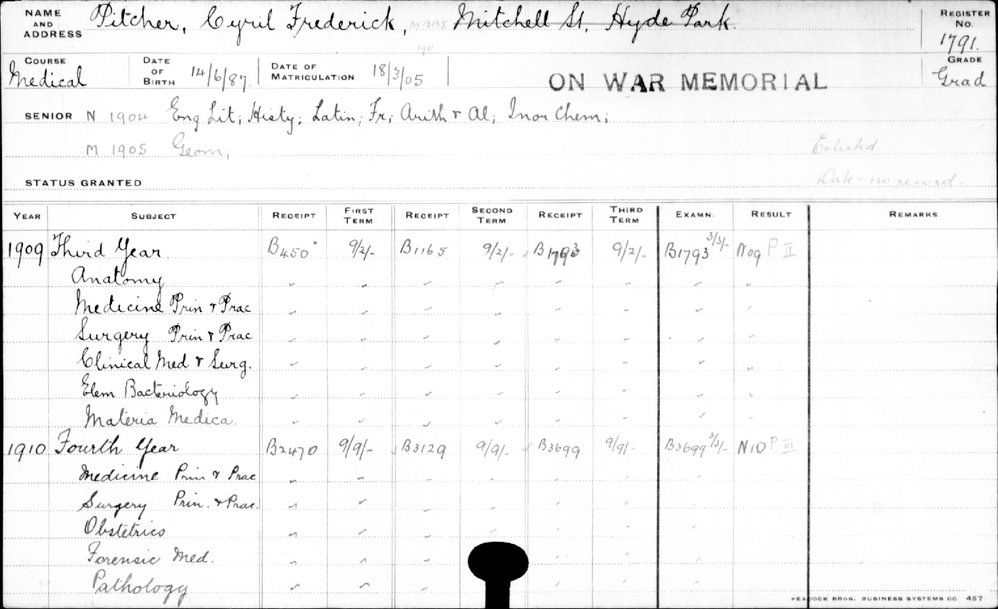 NAME AND ADDRESS Pitcher, Cyril Frederick, Mitchell St, Hyde Park. REGISTER No. 1791.
COURSE Medical DATE OF BIRTH 14/6/87. DATE OF MATRICULATION 18/3/05 ON WAR MEMORIAL GRADE Grad
SENIOR N 1904 Eng Lit; Histy; Latin; Fr; Arith & Al; Inor Chem;
M 1905 Geom; Enlisted
STATUS GRANTED Date - no record.
YEAR SUBJECT RECEIPT FIRST TERM RECEIPT SECOND TERM RECEIPT THIRD TERM EXAMN. RESULT REMARKS
1909 Third Year B450 9/2/- B1165 9/2/- B1793 9/2/- B1793 3/3/- N09 P II
Anatomy
Medicine Prin & Prac
Surgery Prin & Prac
Clinical Med & Surg.
Elem Bacteriology
Materia Medica.
1910 Fourth Year B2470 9/9/- B3129 9/9/- B3699 9/9/- B3699 3/3/- N10 P III
Medicine Prin & Prac
Surgery Prin. & Prac.
Obstetrics
Forensic Med.
Pathology
PEACOCK BROS. BUSINESS SYSTEMS CO. 457